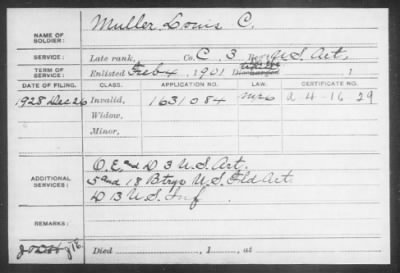 NAME OF SOLDIER: Muller, Louis C.
SERVICE: Late rank, Co. C. 3 Reg't U.S. Art.
TERM OF SERVICE: Enlisted Feb 4, 1901 Discharged 1
DATE OF FILING. CLASS. APPLICATION NO. LAW. CERTIFICATE NO.
1928 Dec 26 Invalid, 1631084 a 4-16 29
Widow,
Minor,
ADDITIONAL SERVICES: O. E. and D 3 U.S. Art.
5 and 18 Btrys U.S. Fld Art.
D 13 U.S. Inf.
REMARKS:
Died , 1 , at